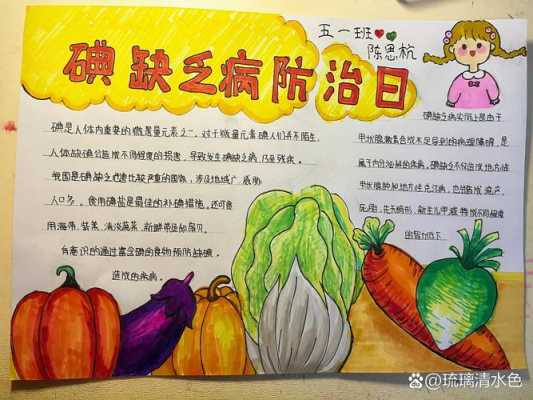 碘缺乏病防治日
五一班
陈思杭
碘是人体内重要的微量元素之一。对于微量元素碘人们并不陌生,
人体缺碘会造成不同程度的损害,导致发生碘缺乏病
我国是碘缺乏危害比较严重的国家,涉及地域广,威胁
人口多。食用碘盐是最佳的补碘措施。还可食
用海带、紫菜、
有意识的通过富含碘的食物预防缺碘
造成的疾病。
碘缺乏病实际上是由于
甲状腺激素合成不足导致的病理障碍,是
属于内分泌科的疾病。碘缺乏不仅造成地方性
甲状腺肿和地方性克汀病,也会造成流产、
死胎、先天畸形、新生儿甲减
@琉璃清水色